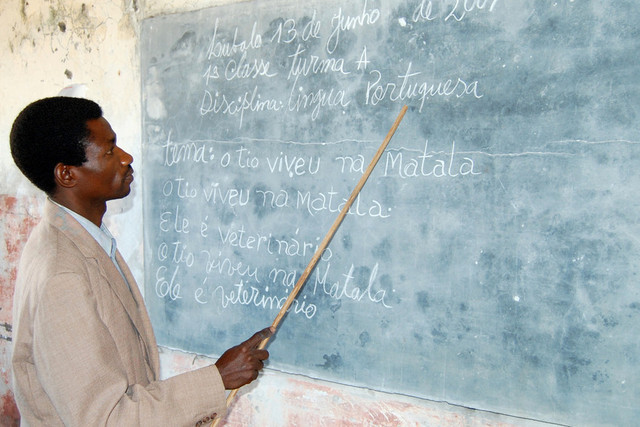 Lubalo 13 de junho de
1ª classe turma A
Disciplina: língua Portuguesa
tema: o tio viveu na Matala
o tio viveu na Matala.
Ele é veterinário
o tio viveu na Matala.
Ele é veterinário